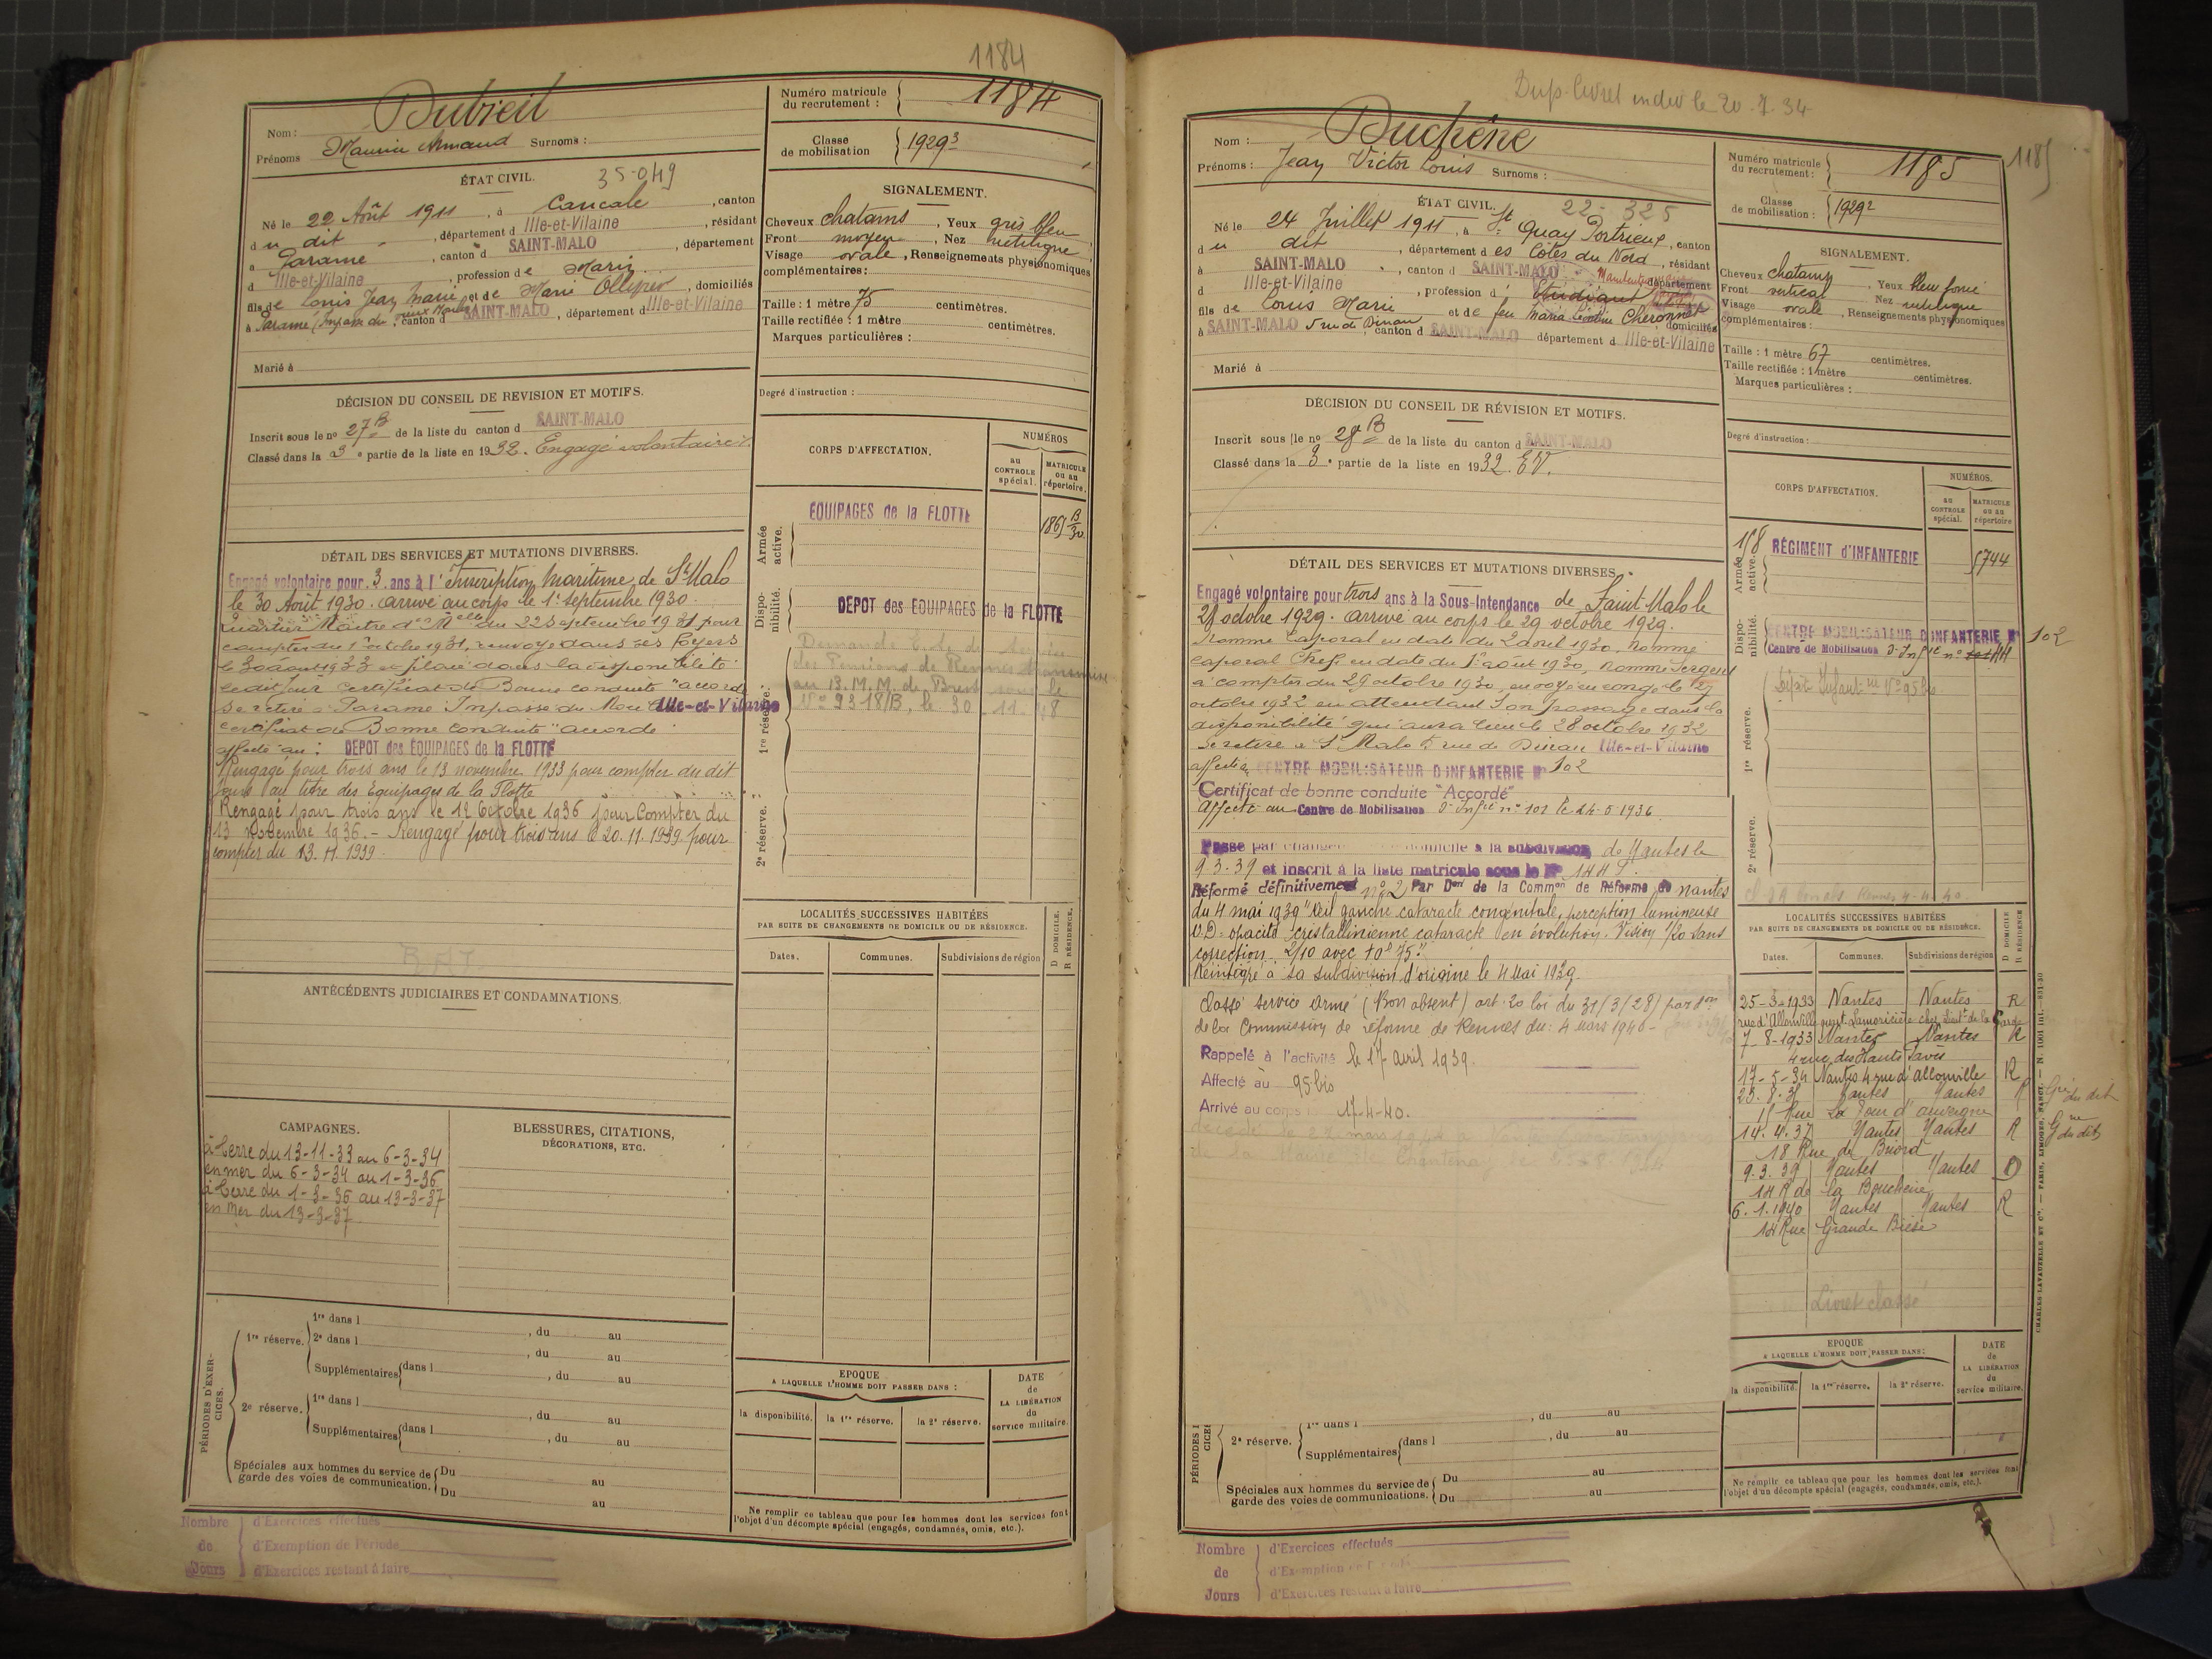 1184
Dubreil
Nom :
Prénoms Maurice Armand Surnoms :
Numéro matricule du recrutement : 1184
Classe de mobilisation 1929³
ÉTAT CIVIL. 35-049
Né le 22 Août 1911, à Cancale, canton
du dit, département d Ille-et-Vilaine, résidant
à Paramé, canton d SAINT-MALO, département
d Ille-et-Vilaine, profession de Marin
fils de Louis Jean Marie et de Marie Ollivier, domiciliés
à Paramé (Impasse du vieux Moulin), canton d SAINT-MALO, département d Ille-et-Vilaine
Marié à
SIGNALEMENT.
Cheveux chatains, Yeux gris bleu
Front moyen, Nez rectiligne
Visage ovale, Renseignements physionomiques
complémentaires :
Taille : 1 mètre 75 centimètres.
Taille rectifiée : 1 mètre centimètres.
Marques particulières :
Degré d'instruction :
DÉCISION DU CONSEIL DE REVISION ET MOTIFS.
Inscrit sous le nº 27 B de la liste du canton d SAINT-MALO
Classé dans la 3e partie de la liste en 1932. Engagé volontaire
CORPS D'AFFECTATION.
NUMÉROS
au CONTROLE spécial.
MATRICULE ou au répertoire.
Armée active.
EQUIPAGES de la FLOTTE
Dispo-nibilité.
DEPOT des EQUIPAGES de la FLOTTE
des Pensions de Rennes transmise
au B.M.M. de Brest sous le
Nº 2318/B, le 30-11-48
1re réserve.
2e réserve.
DÉTAIL DES SERVICES ET MUTATIONS DIVERSES.
Engagé volontaire pour 3 ans à l'Inscription Maritime de St Malo
le 30 Août 1930. arrivé au corps le 1er Septembre 1930.
Quartier Maitre du 22 Septembre 1931 pour
compter du 1er octobre 1931, renvoyé dans ses foyers
le 30 août 1933 et placé dans la disponibilité
le dit jour Certificat de Bonne conduite "accordé
se retire à Paramé Impasse du Ille-et-Vilaine
certificat de Bonne Conduite" accordé
affecté au : DEPOT des EQUIPAGES de la FLOTTE
Rengagé pour trois ans le 13 novembre 1933 pour compter du dit
jour au titre des Equipages de la Flotte
Rengagé pour trois ans le 12 Octobre 1936 pour Compter du
13 Novembre 1936. - Rengagé pour trois ans le 20.11.1939 pour
compter du 13.11.1939
ANTÉCÉDENTS JUDICIAIRES ET CONDAMNATIONS.
LOCALITÉS SUCCESSIVES HABITÉES
PAR SUITE DE CHANGEMENTS DE DOMICILE OU DE RÉSIDENCE.
Dates. Communes. Subdivisions de région
D DOMICILE. R RÉSIDENCE.
CAMPAGNES.
à terre du 13-11-33 au 6-3-34
en mer du 6-3-34 au 1-3-36
à terre du 1-3-36 au 13-3-37
en mer du 13-3-37
BLESSURES, CITATIONS,
DÉCORATIONS, ETC.
PÉRIODES D'EXER-CICES.
1re réserve. 1re dans l , du au
2e dans l , du au
Supplémentaires dans l , du au
2e réserve. 1re dans l , du au
Supplémentaires dans l , du au
Spéciales aux hommes du service de garde des voies de communication. Du au
Du au
EPOQUE
A LAQUELLE L'HOMME DOIT PASSER DANS :
la disponibilité. la 1re réserve. la 2e réserve.
DATE de LA LIBÉRATION du service militaire.
Ne remplir ce tableau que pour les hommes dont les services font
l'objet d'un décompte spécial (engagés, condamnés, omis, etc.).
Nombre de Jours
d'Exercices effectués
d'Exemption de Période
d'Exercices restant à faire
Dup. livret le 20.7.34
Duchêne
Nom :
Prénoms : Jean Victor Louis Surnoms :
Numéro matricule du recrutement : 1185
1185
Classe de mobilisation : 1929²
ÉTAT CIVIL. 22-325
Né le 24 Juillet 1911, à St Quay Portrieux, canton
du dit, département des Côtes du Nord, résidant
à SAINT-MALO, canton d SAINT-MALO, département
d Ille-et-Vilaine, profession d' étudiant
fils de Louis Marie et de feu Maria Léontine Cheronnet domiciliés
à SAINT-MALO 5 rue de Dinan, canton d SAINT-MALO département d Ille-et-Vilaine
Marié à
SIGNALEMENT.
Cheveux chatains, Yeux bleu foncé
Front vertical, Nez rectiligne
Visage ovale, Renseignements physionomiques
complémentaires :
Taille : 1 mètre 67 centimètres.
Taille rectifiée : 1 mètre centimètres.
Marques particulières :
Degré d'instruction :
DÉCISION DU CONSEIL DE RÉVISION ET MOTIFS.
Inscrit sous le nº 28 B de la liste du canton d SAINT-MALO
Classé dans la 3e partie de la liste en 1932. E.V.
CORPS D'AFFECTATION.
NUMÉROS.
au CONTROLE spécial.
MATRICULE ou au répertoire
Armée active.
RÉGIMENT d'INFANTERIE 5744
Dispo-nibilité.
CENTRE MOBILISATEUR D'INFANTERIE Nº 102
Centre de Mobilisation d'Infie nº
1re réserve.
2e réserve.
DÉTAIL DES SERVICES ET MUTATIONS DIVERSES.
Engagé volontaire pour trois ans à la Sous-Intendance de Saint-Malo le
28 octobre 1929. arrivé au corps le 29 octobre 1929.
Nommé Caporal en date du 2 avril 1930, Nommé
caporal Chef en date du 1er août 1930, nommé Sergent
à compter du 29 octobre 1930, envoyé en congé le 27
octobre 1932 en attendant son passage dans la
disponibilité qui aura lieu le 28 octobre 1932
Se retire à St Malo 5 rue de Dinan Ille-et-Vilaine
affecté au CENTRE MOBILISATEUR D'INFANTERIE Nº 102
Certificat de bonne conduite "Accordé"
Affecté au Centre de Mobilisation d'Infie nº 101 le 14-5-1936
Passe par changement de domicile à la subdivision de Nantes le
9.3.39 et inscrit à la liste matricule sous le Nº
Réformé définitivement nº 2 Par Don de la Common de Réforme de Nantes
du 4 mai 1939 "Œil gauche cataracte congénitale, perception lumineuse
O.D = opacité cristallinienne cataracte en évolution. Vision 1/20 sans
correction. 2/10 avec +0d 75"
Réintégré à sa subdivision d'origine le 4 Mai 1939
Classé service armé (Bon absent) art. 20 loi du 31/3/28) par don
de la Commission de réforme de Rennes du : 4 Mars 1940 -
Rappelé à l'activité le 17 avril 1939.
Affecté au 95 bis
Arrivé au corps le 17-4-40.
LOCALITÉS SUCCESSIVES HABITÉES
PAR SUITE DE CHANGEMENTS DE DOMICILE OU DE RÉSIDENCE.
Dates. Communes. Subdivisions de région
D DOMICILE R RÉSIDENCE
25-3-1933 Nantes Nantes R
rue d'Allonville quart. Lamoricière chez Lieut. de la Garde
7-8-1933 Nantes Nantes R
4 rue des Hauts Pavés
17-5-34 Nantes 4 rue d'Allonville R
Nantes Nantes R
Rue La Tour d'auvergne
14.4.37 Nantes Nantes R
18 Rue de Briord
9.3.39 Nantes Nantes D
14 R de la Boucherie
6.1.1940 Nantes Nantes R
14 Rue Grande Biesse
Livret classé
EPOQUE
A LAQUELLE L'HOMME DOIT PASSER DANS :
la disponibilité. la 1re réserve. la 2e réserve.
DATE de LA LIBÉRATION du service militaire.
PÉRIODES
2e réserve. 1re dans l , du au
Supplémentaires dans l , du au
Spéciales aux hommes du service de garde des voies de communications. Du au
Du au
Ne remplir ce tableau que pour les hommes dont les services font
l'objet d'un décompte spécial (engagés, condamnés, omis, etc.).
Nombre de Jours
d'Exercices effectués
d'Exemption
d'Exercices restant à faire